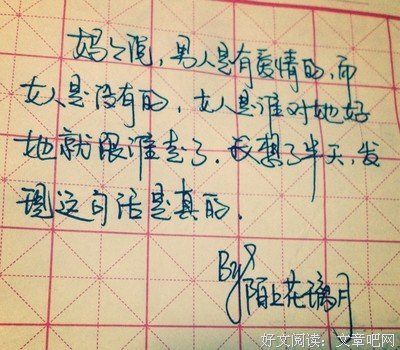 妈之说，男人是有爱情的，而
女人是没有的，女人是谁对她好
她就跟谁走了．我想了半天，发
现这句话是真的．
By
陌上花璃月
好文阅读：文章吧网